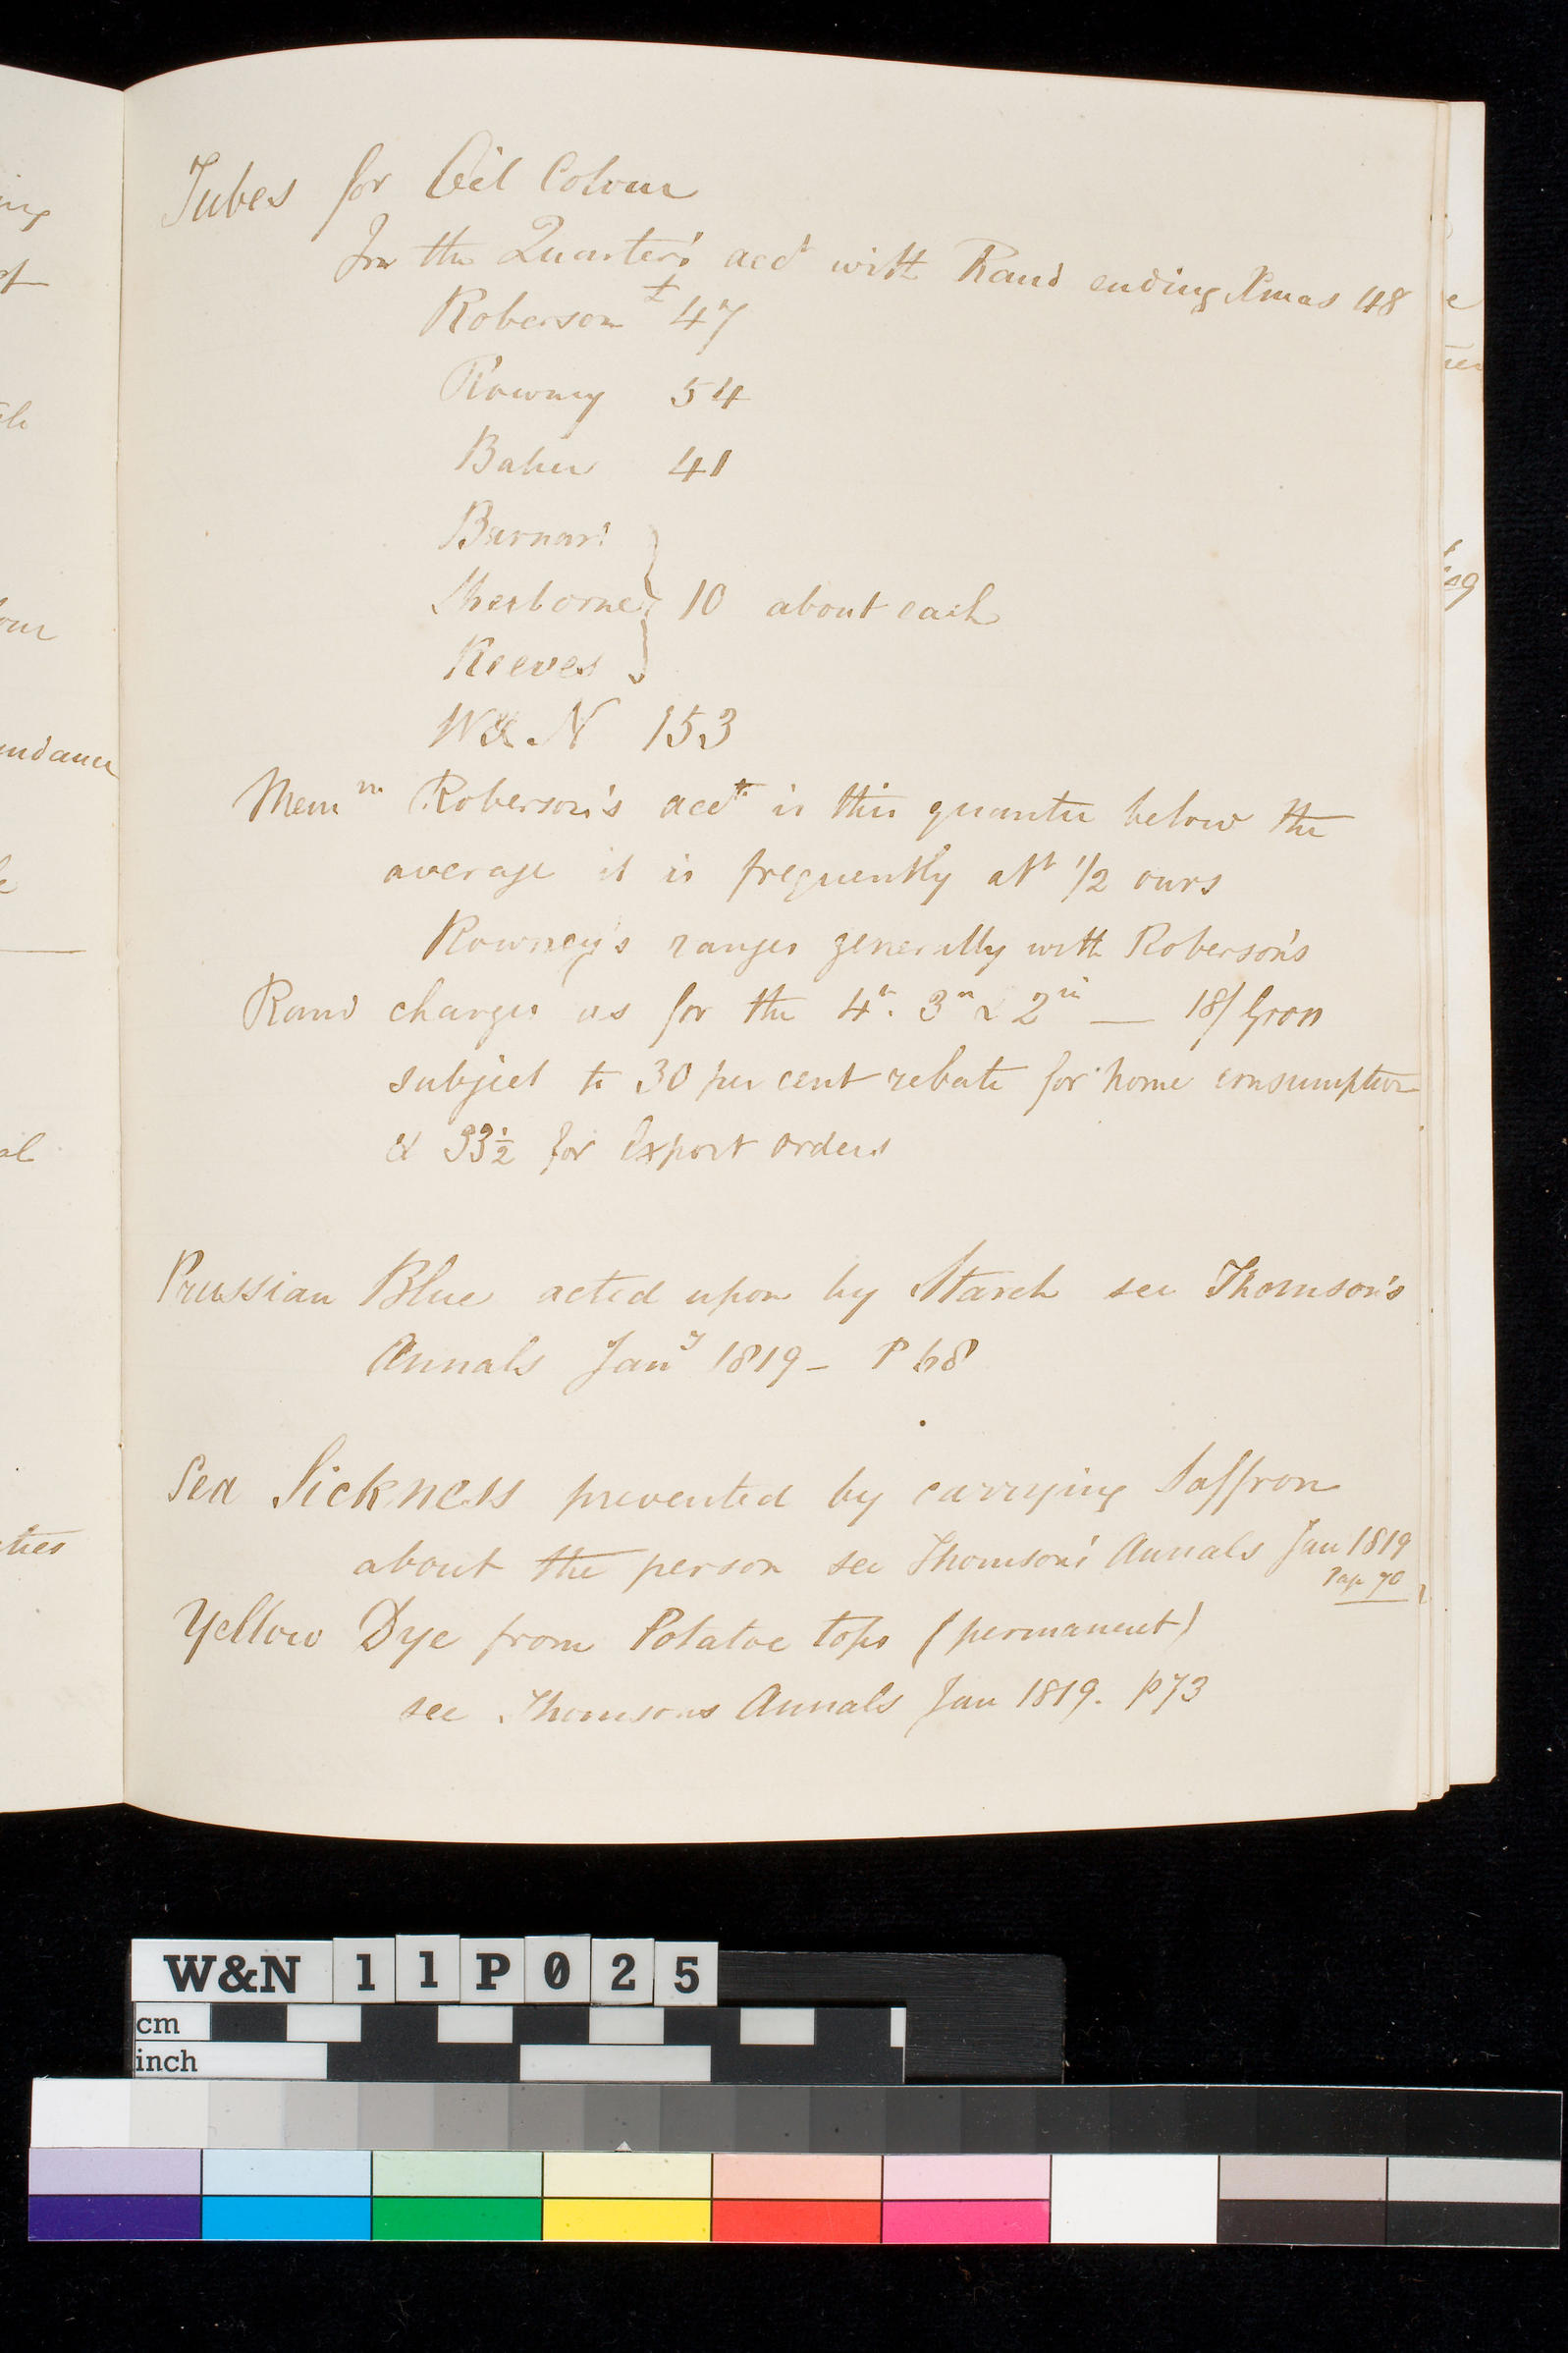 Tubes for Oil Colour
for the Quarter's acct with Rand ending Xmas 48
Roberson £ 47
Rowney 54
Baker 41
Barnard
Sherborne } 10 about each
Reeves
W & N 153
Memm Roberson's acct is this quarter below the
average it is frequently abt 1/2 ours
Rowney's ranges generally with Roberson's
Rand charges us for the 4in. 3in & 2in — 18/ Gross
subject to 30 per cent rebate for home consumption
& 33½ for Export orders
Prussian Blue acted upon by Starch see Thomson's
Annals Jany 1819 – P 68
Sea Sickness prevented by carrying Saffron
about the person see Thomson's Annals Jan 1819
Page 70
Yellow Dye from Potatoe tops (permanent)
see Thomsons Annals Jan 1819. p73
W&N 11P025
cm
inch